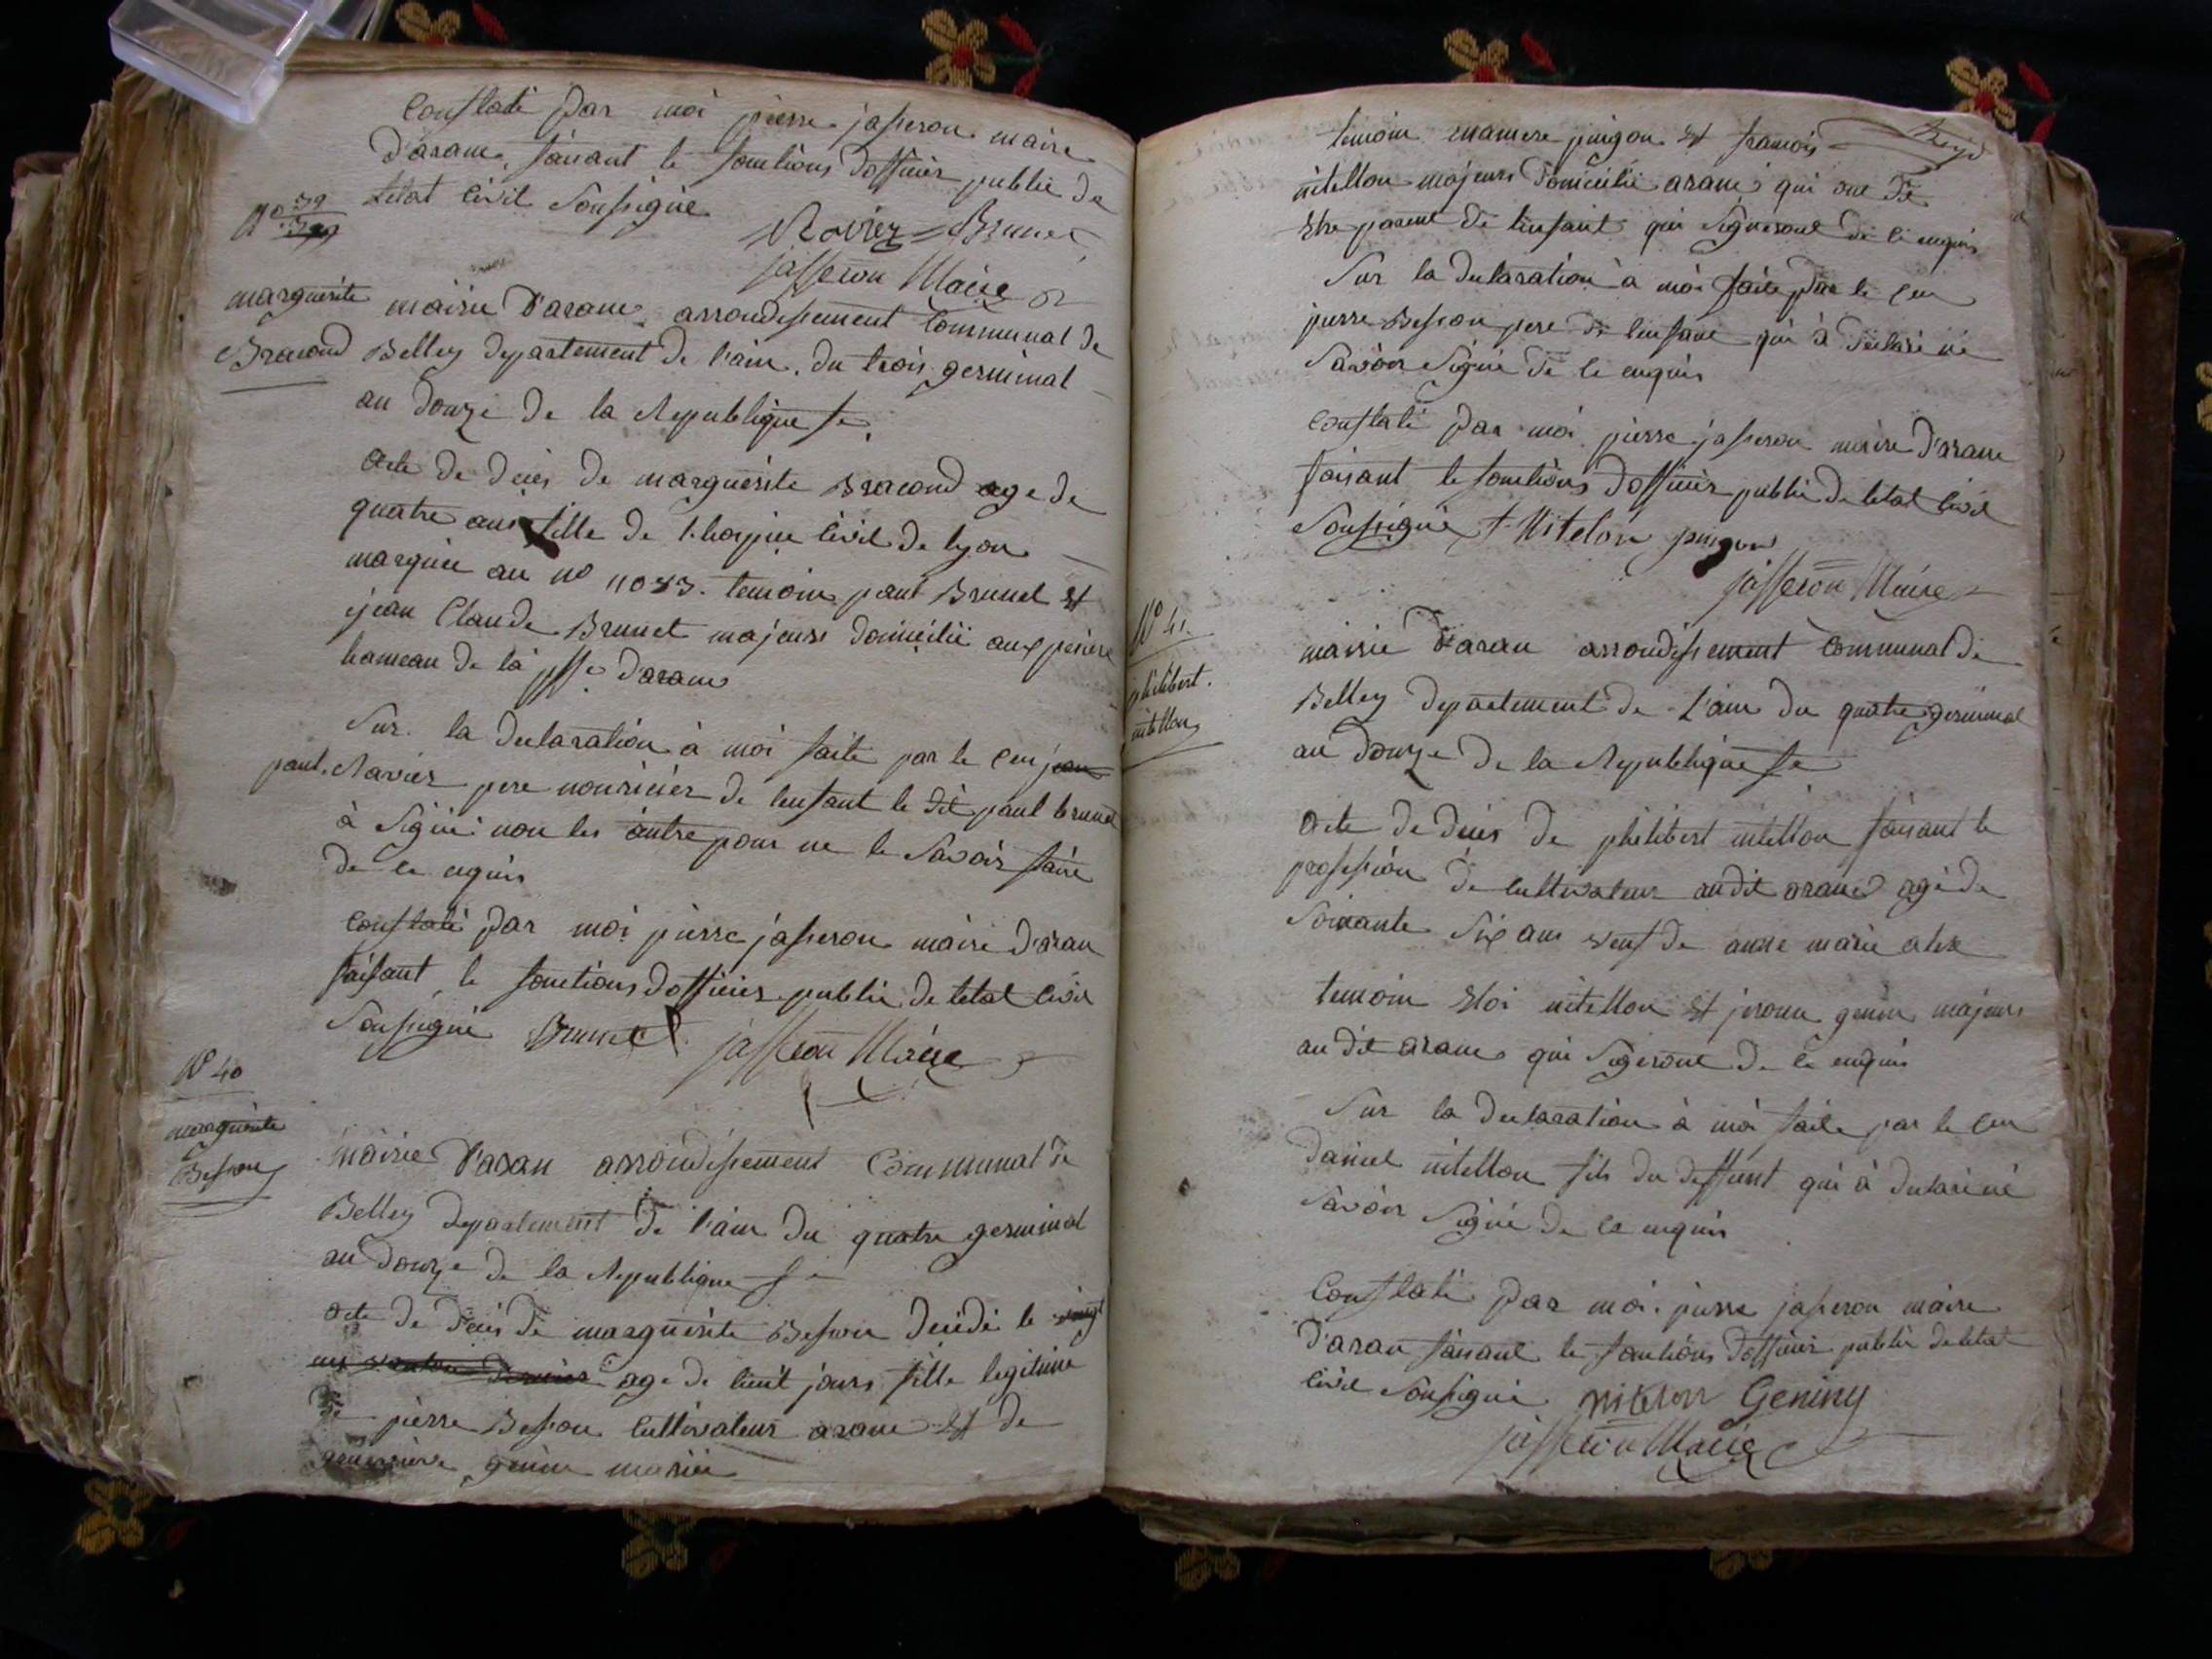 Constaté par moi pierre jasseron maire
d'arane, faisant le fonctions dofficier public de
letat civil Soussigné
Brunet
jasseron Maire
No 39
marguerite
Bracond
mairie d'arane arrondissement Communal de
Belley departement de l'ain, du trois germinal
an douze de la Republique fse
acte de deces de marguerite Bracond age de
quatre ans fille de l. hospice civil de lyon
marquée au no 11083. temoin paul Brunet et
jean Claude Brunet majeurs domicilié aux
hameau de la d'arane
Sur la declaration à moi faite par le cen jean
paul Ravier pere nouricier de lenfant le dit paul brunet
à Signé non les autre pour ne le Savoir faire
de ce requis
Constaté par moi pierre jasseron maire d'aran
faisant le fonctions dofficier public de letat civil
Soussigné Brunet jasseron Maire
No 40
marguerite
Besson
mairie d'aran arrondissement Communal de
Belley departement de l'ain du quatre germinal
an douze de la Republique fse
acte de deces de marguerite Besson decedé le vingt
age de huit jours fille legitime
de pierre Besson Cultivateur arane et de
genin mariée
temoin pingon et francois
nitellon majeurs domicilié arane qui ont dit
etre parent de lenfant qui Signeront de ce enquis
Sur la declaration à moi faite par le cen
pierre Besson pere de lenfant qui à declaré ne
Savoir Signé de ce enquis
Constaté par moi pierre jasseron maire d'arane
faisant le fonctions dofficier public de letat civil
Soussigné f. Nitelon pingon
jasseron Maire
No 41.
philibert.
nitellon
mairie d'aran arrondissement Communal de
Belley departement de L'ain du quatre germinal
an douze de la Republique fse
acte de deces de philibert nitellon faisant le
profession de cultivateur audit arane agé de
Soixante Six ans veuf de anne marie alex
temoin Eloi nitellon et jerome genin majeurs
au dit arane qui Signeront de ce enquis
Sur la declaration à moi faite par le cen
Daniel nitellon fils du deffunt qui à declaré né
Savoir Signé de ce enquis
Constaté par moi pierre jasseron maire
d'aran faisant le fonctions dofficier public de letat
civil Soussigné nitelon Geniny
jasseron Maire